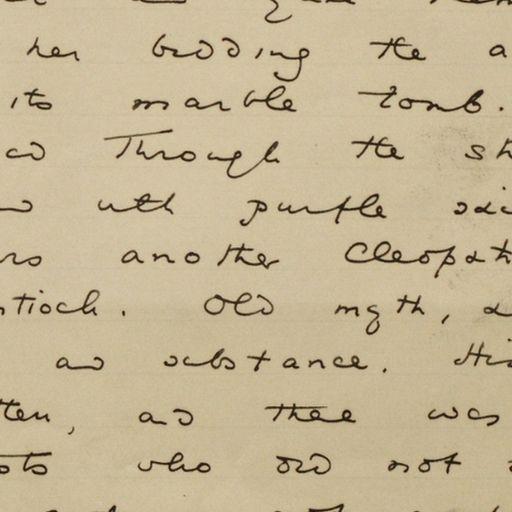 her bidding the a
its marble tomb.
through the sh
with purple sai
another Cleopat
ntioch. Old myth,
and substance. His
tten, and there was
who did not